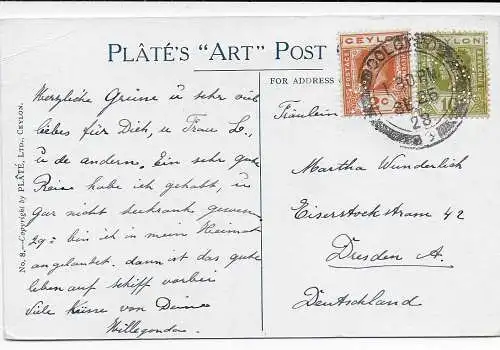 PLÂTÉ'S "ART" POST
FOR ADDRESS O
No. 8.—Copyright by PLÂTÉ, LTD., CEYLON.
CEYLON
POSTAGE
2c
YLON
10
COLOMBO
30 PM
SE 25
28
Herzliche Grüsse u sehr viel
liebes für Dich, u Frau L.,
u de andern. Ein sehr gute
Reise habe ich gehabt, u
gar nicht seekrank gewesen
29= bin ich in mein Heimat
angelandet. dann ist das gute
leben auf schiff vorbei
Viele küsse von Deine
Fräulein
Martha Wunderlich
Eiserstockstram 42
Dresden A.
Deutschland